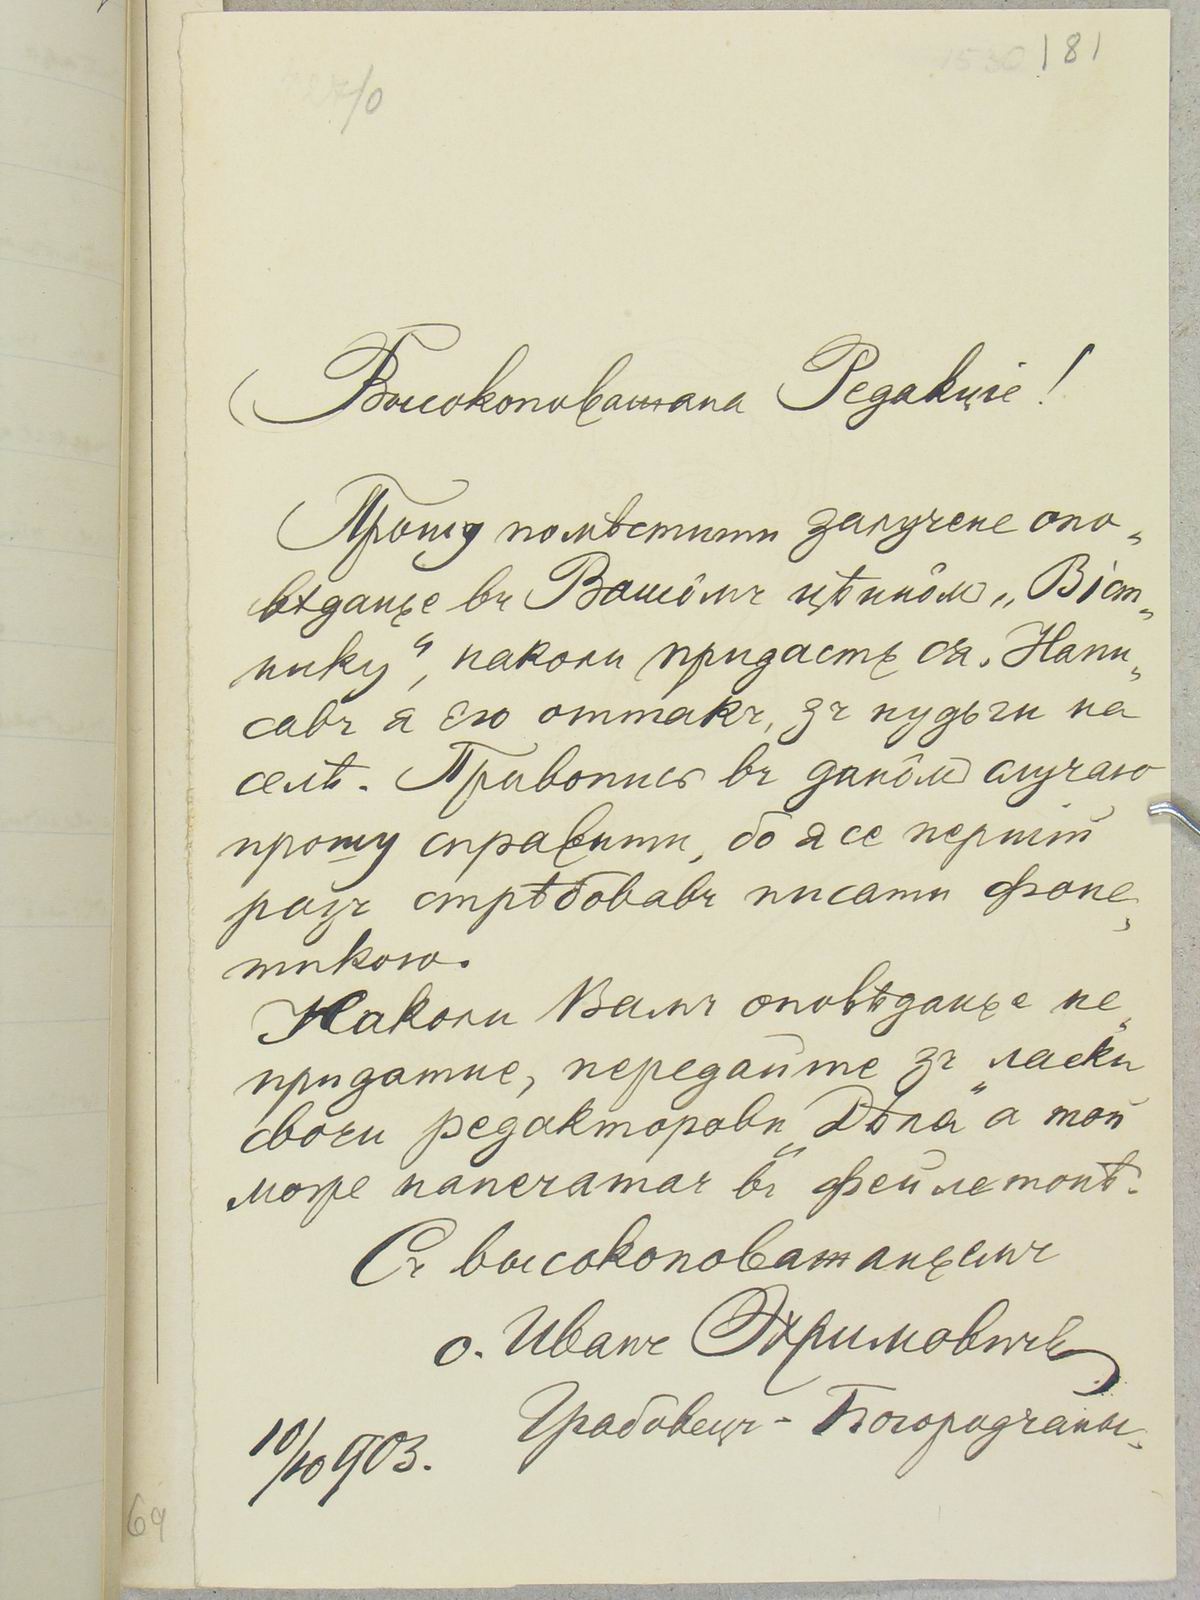 181
Высокоповажана Редакціє!
Прошу помѣстити залучене опо-
вѣданьє въ Вашôмъ цѣннôм „Віст-
нику“, наколи придасть ся. Напи-
савъ я єго оттакъ, зъ нудьги на
селѣ. Правопись въ данôм случаю
прошу справити, бо я се перший
разъ стрѣбовавъ писати фоне-
тикою.
Наколи Вамъ оповѣданьє не-
придатне, передайте зъ ласки
своєи редакторови „Дѣла“ а той
може напечатає въ фейлетонѣ.
Съ высокоповажаньємъ
о. Иванъ
Грабовець - Богородчаны.
10/10 903.
69